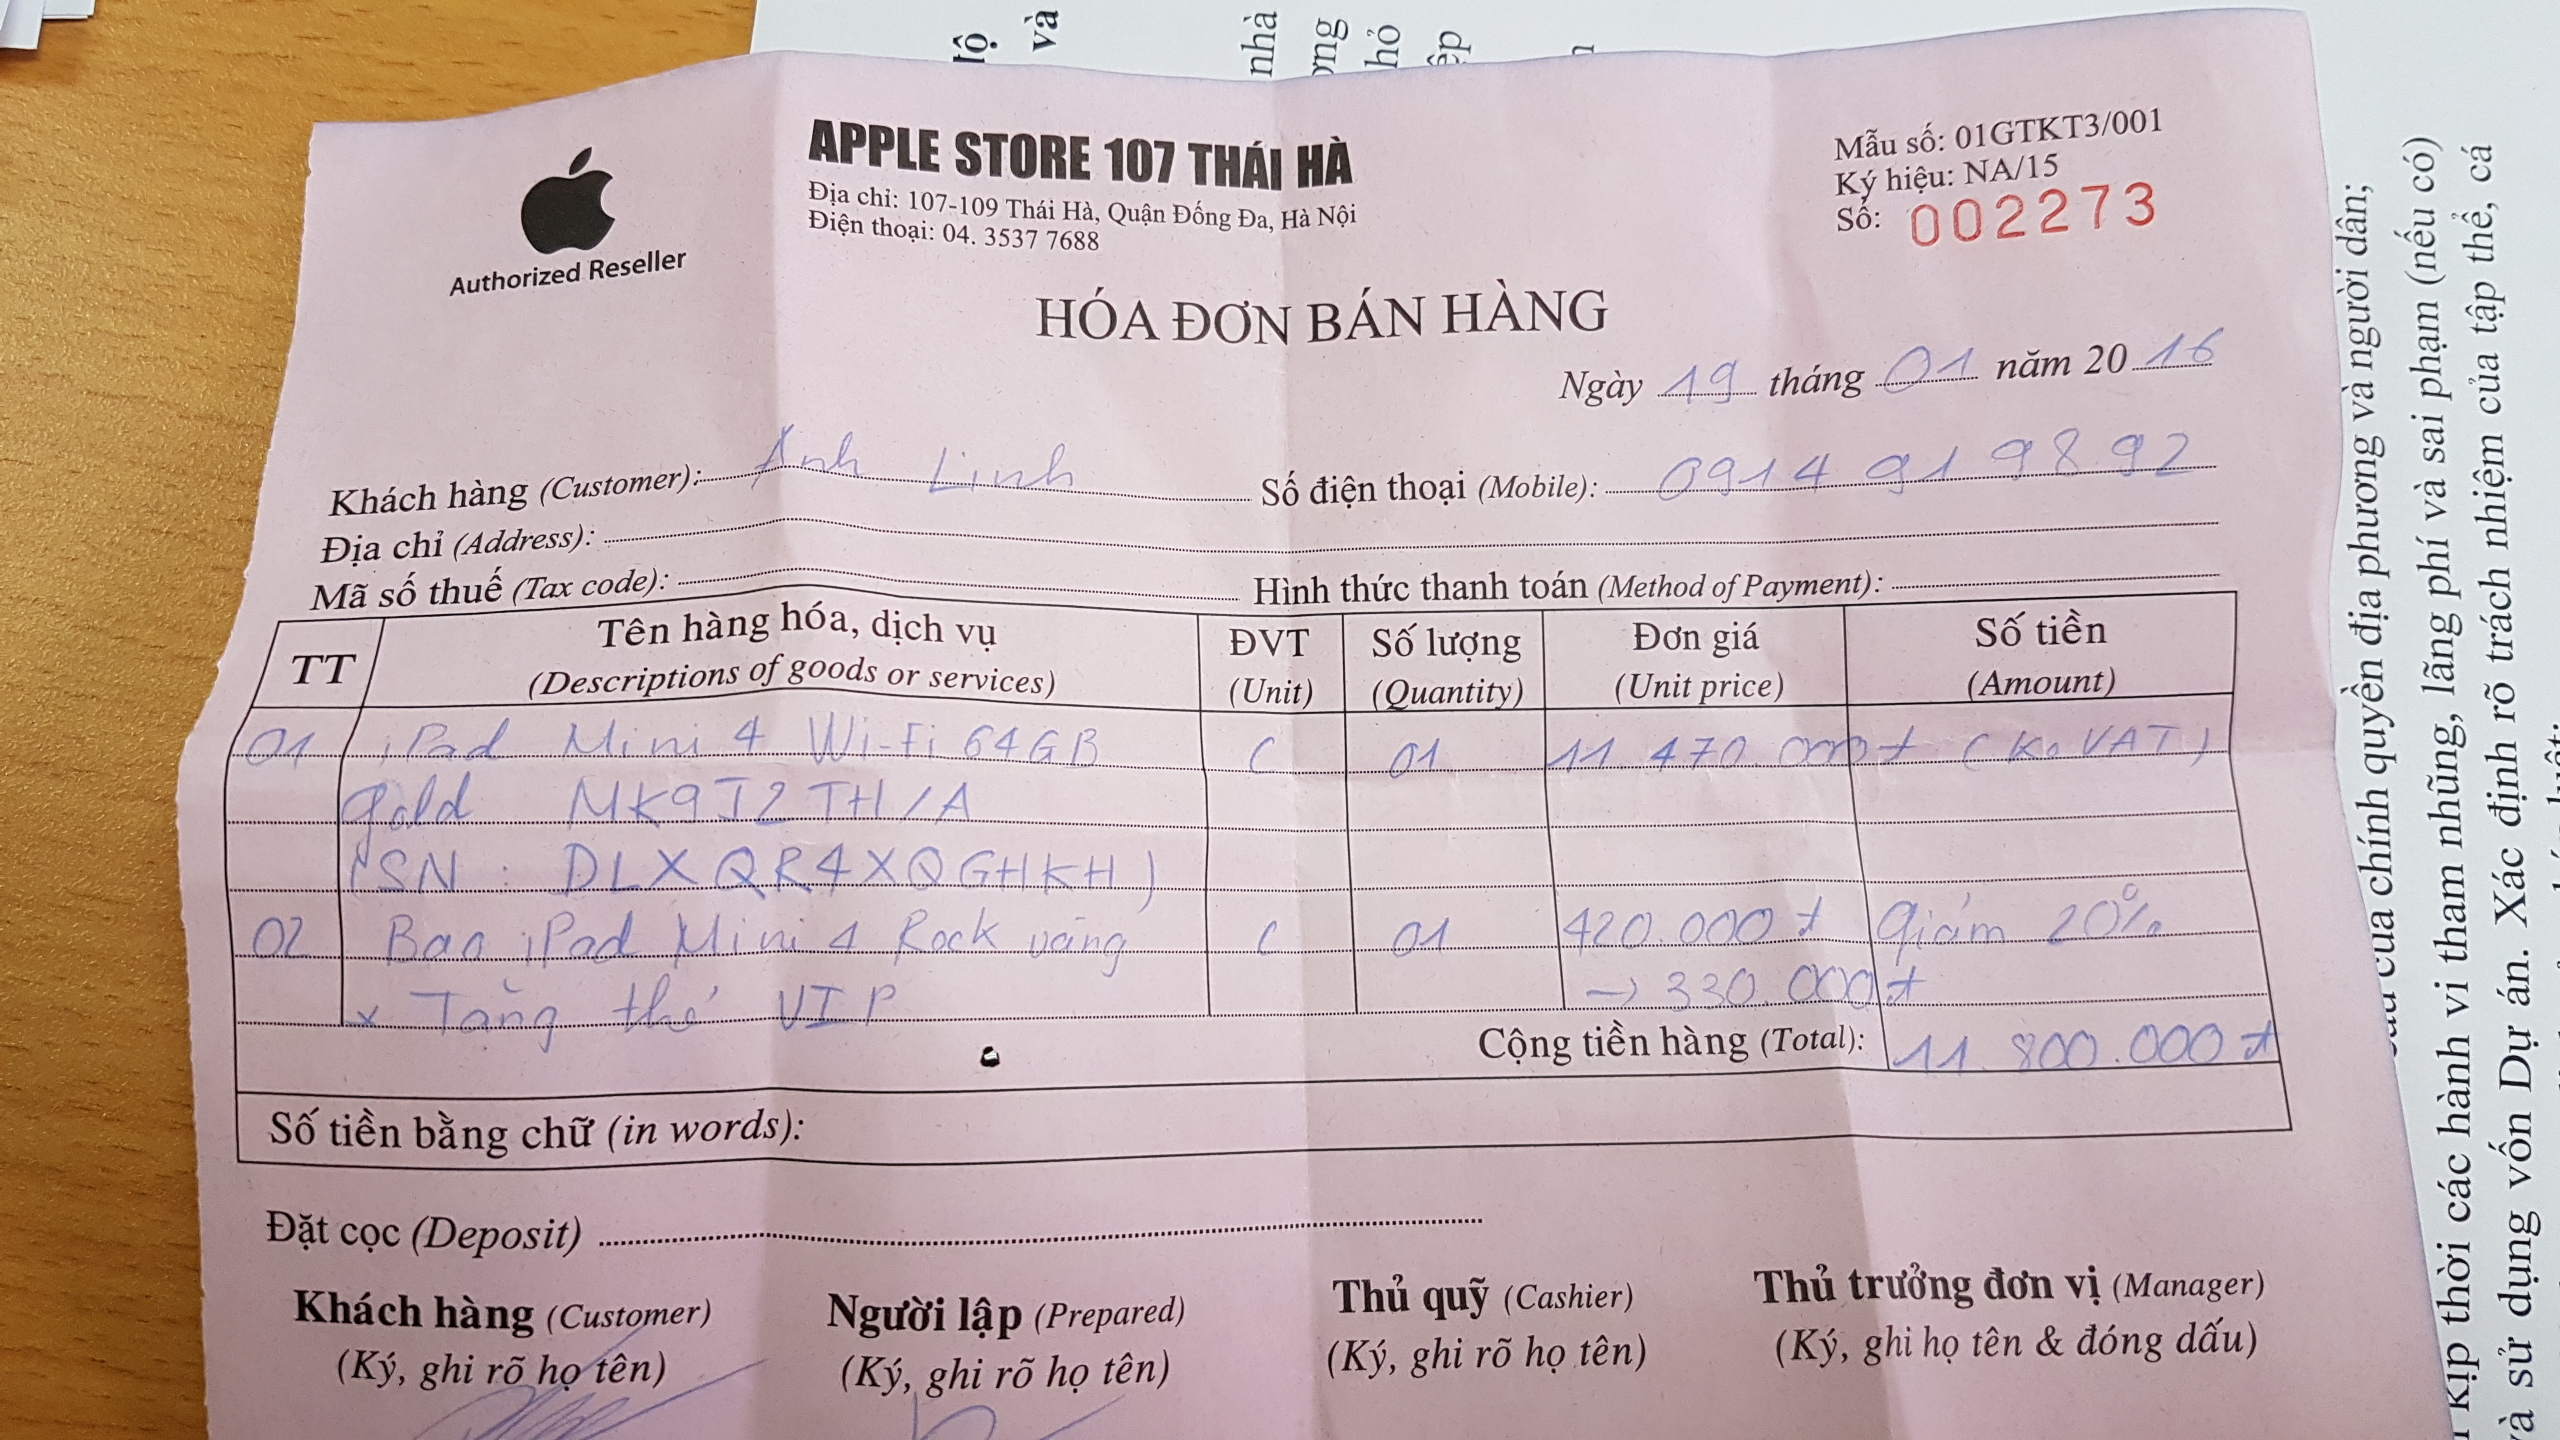 APPLE STORE 107 THÁI HÀ
Địa chỉ: 107-109 Thái Hà, Quận Đống Đa, Hà Nội
Điện thoại: 04. 3537 7688
Authorized Reseller
Mẫu số: 01GTKT3/001
Ký hiệu: NA/15
Số: 002273
HÓA ĐƠN BÁN HÀNG
Ngày 19 tháng 01 năm 2016
Khách hàng (Customer): Anh Linh Số điện thoại (Mobile): 0914 91 98 92
Địa chỉ (Address):
Mã số thuế (Tax code): Hình thức thanh toán (Method of Payment):
TT Tên hàng hóa, dịch vụ ĐVT Số lượng Đơn giá Số tiền
(Descriptions of goods or services) (Unit) (Quantity) (Unit price) (Amount)
01 iPad Mini 4 Wi-Fi 64GB C 01 11.470.000đ (Ko VAT)
gold MK9J2TH/A
(SN : DLXQR4XQGHKH)
02 Bao iPad Mini 4 Rock vàng C 01 420.000đ giảm 20%
x Tặng thẻ VIP → 330.000đ
Cộng tiền hàng (Total): 11.800.000đ
Số tiền bằng chữ (in words):
Đặt cọc (Deposit)
Khách hàng (Customer) Người lập (Prepared) Thủ quỹ (Cashier) Thủ trưởng đơn vị (Manager)
(Ký, ghi rõ họ tên) (Ký, ghi rõ họ tên) (Ký, ghi rõ họ tên) (Ký, ghi họ tên & đóng dấu)
và
nhà
của chính quyền địa phương và người dân;
kịp thời các hành vi tham nhũng, lãng phí và sai phạm (nếu có)
và sử dụng vốn Dự án. Xác định rõ trách nhiệm của tập thể, cá